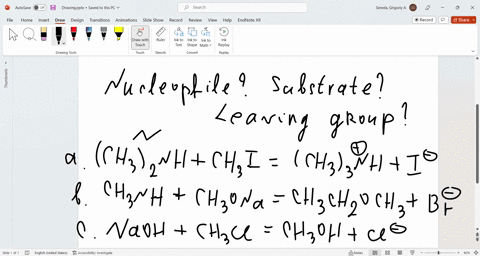 AutoSave Off Drawing.pptx • Saved to this PC Search Sereda, Grigoriy A
File Home Insert Draw Design Transitions Animations Slide Show Record Review View Developer Help EndNote X9
Draw with Touch Ruler Ink to Text Ink to Shape Ink to Math Ink Replay
Drawing Tools Convert Replay
Thumbnails
Nucleophile? Substrate?
Leaving group?
N
a. (CH3)2NH + CH3I = (CH3)3NH⊕ + I⊖
b. CH3NH + CH3ONa = CH3CH2OCH3 + Br⊖
c. NaOH + CH3Cl = CH3OH + Cl⊖
Slide 1 of 1 English (United States) Accessibility: Investigate Notes